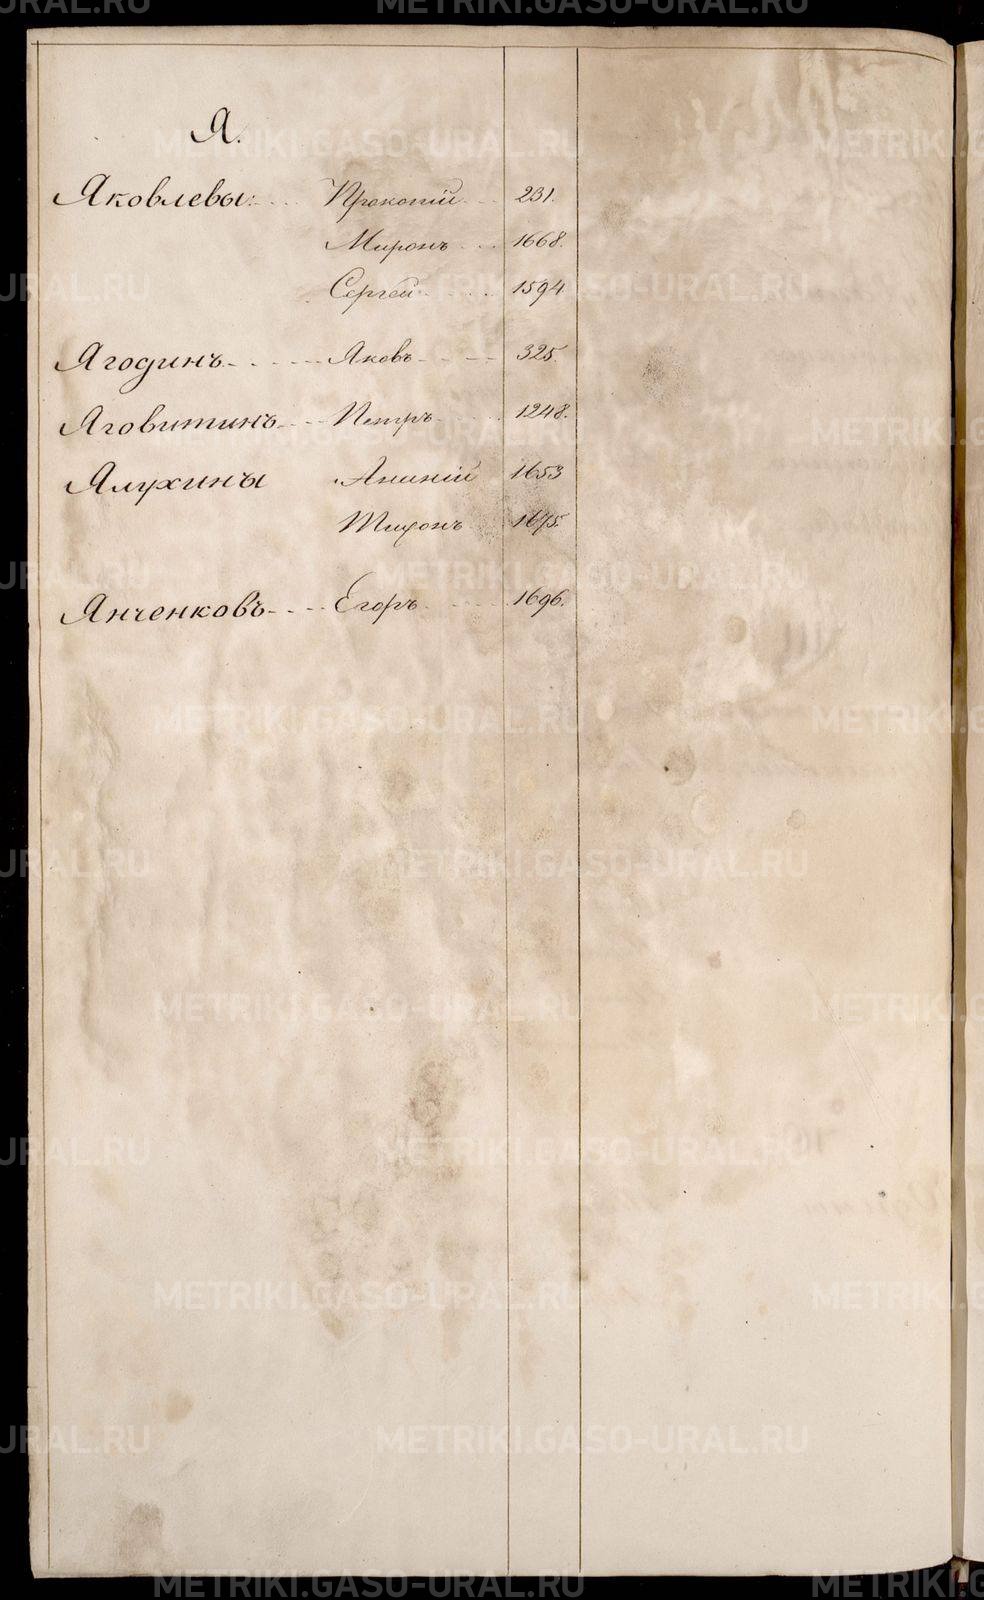 Я.
Яковлевы: Прокопій 231.
Миронъ 1668.
Сергей 1594
Ягодинъ Яковъ 325.
Яговитинъ Петръ 1248.
Ялухины Ананій 1653
Тихонъ 1675.
Янченковъ Егоръ 1696.
METRIKI.GASO-URAL.RU